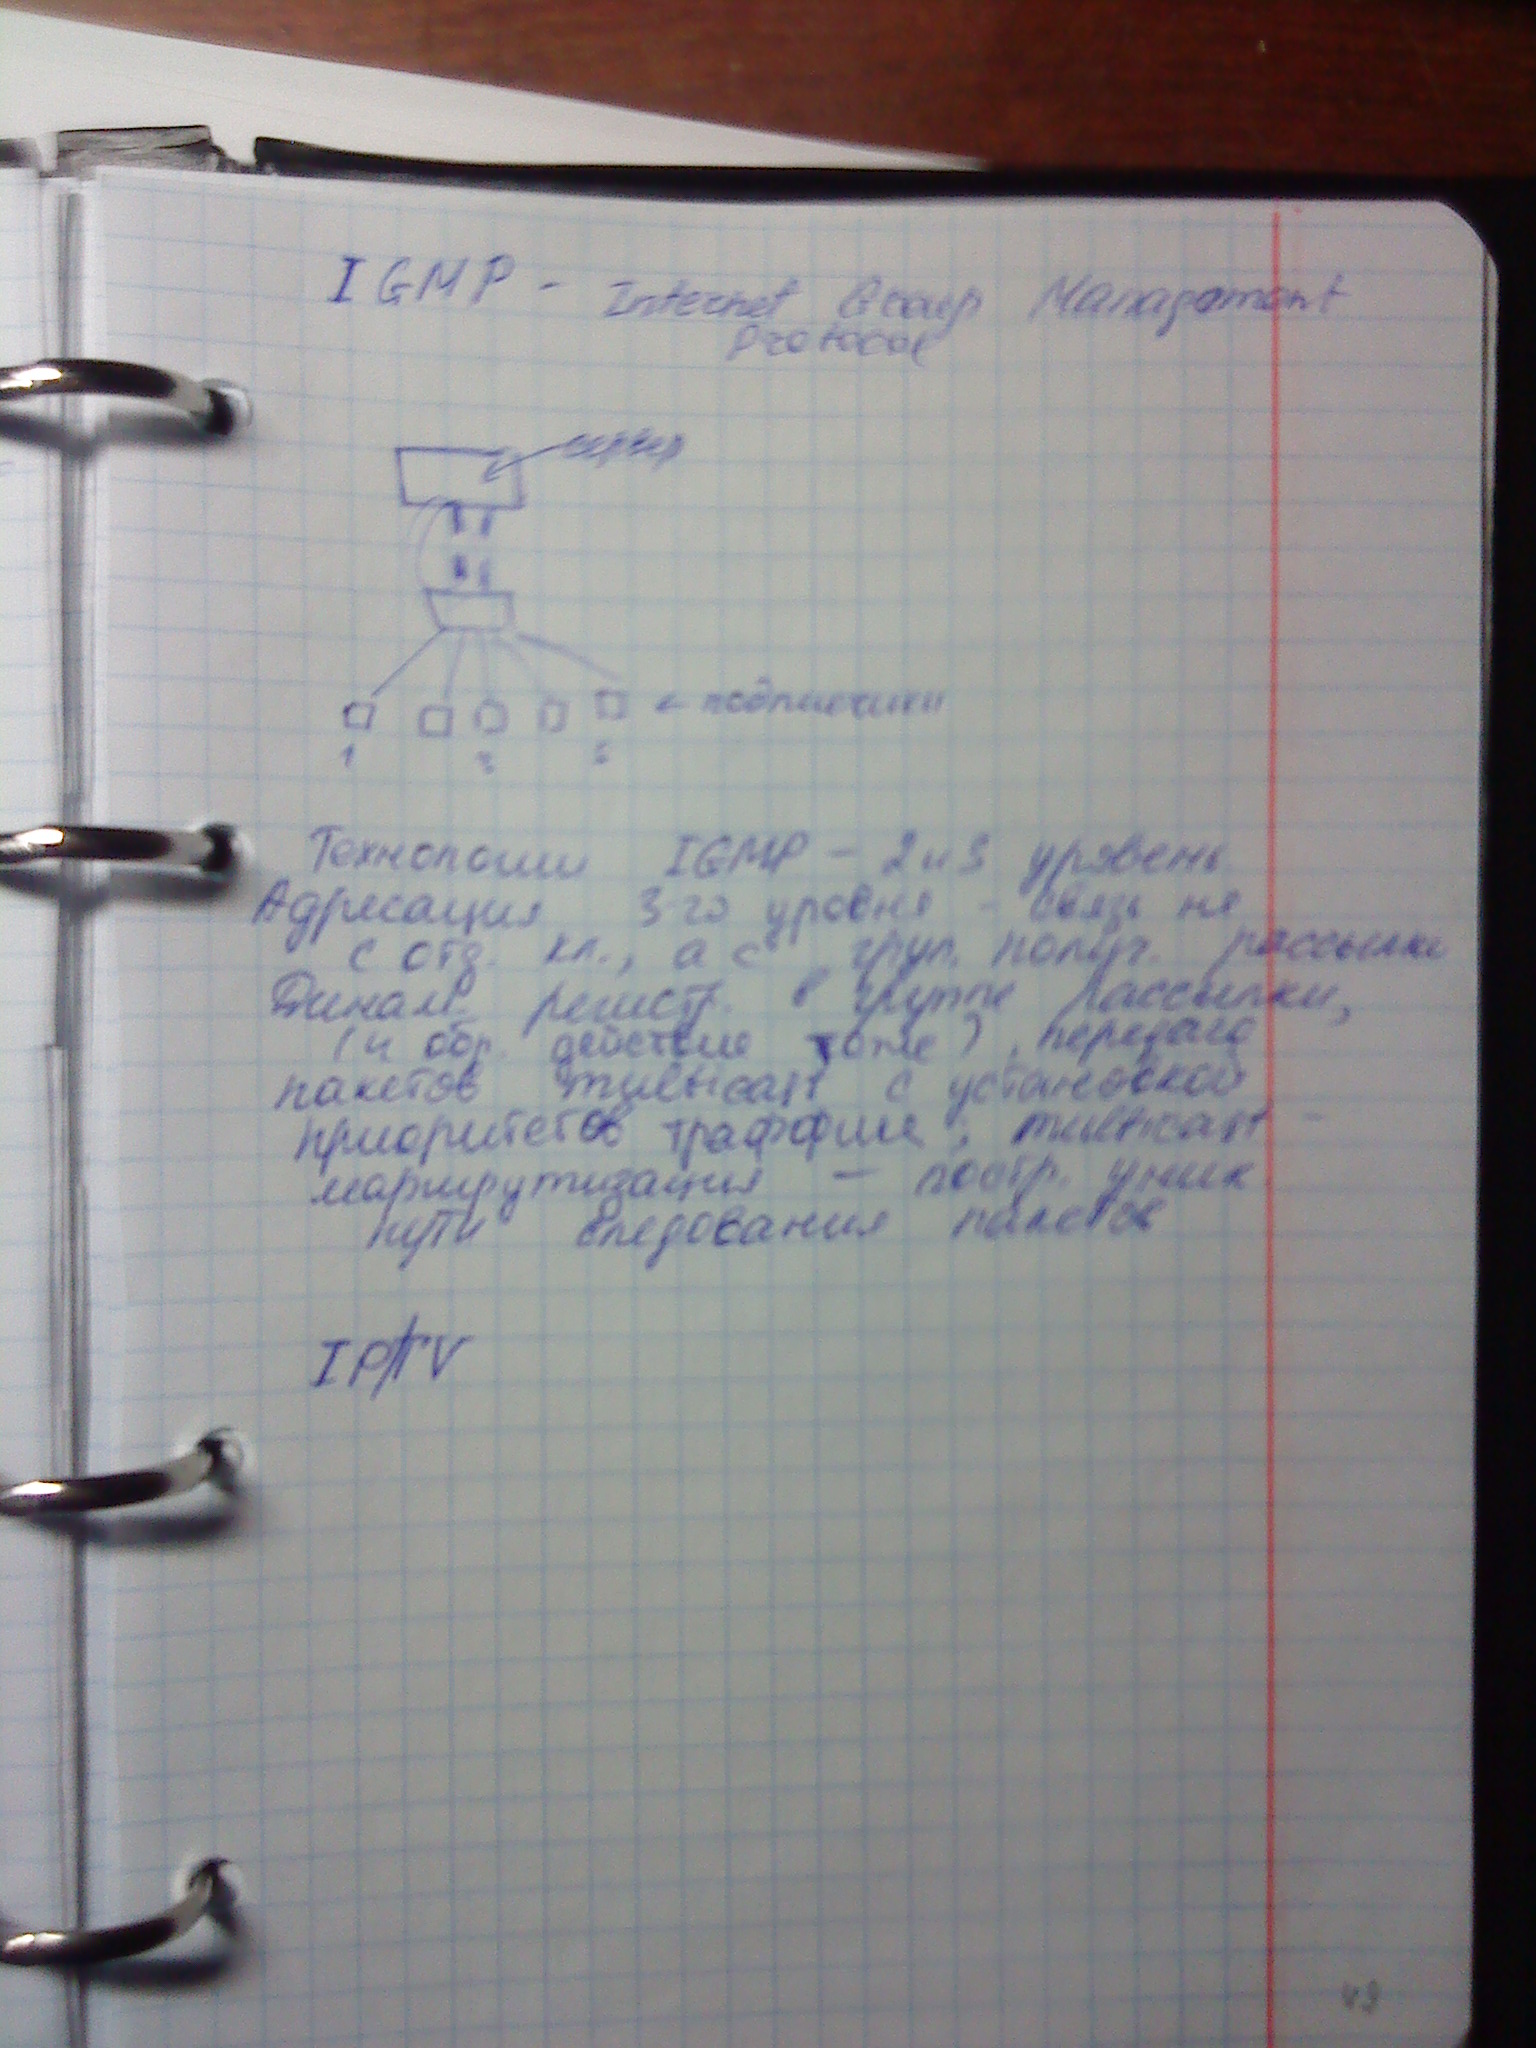 IGMP - Internet Group Management
Protocol
сервер
← подписчики
1 3 5
Технологии IGMP - 2 и 3 уровень
Адресация 3-го уровня - связь не
с отд. кл., а с груп. получ. рассылки
Динам. регистр. в группе рассылки,
(и обр. действие тоже), передача
пакетов multicast с установкой
приоритетов траффика; multicast -
маршрутизация - постр. уник.
пути следования пакетов
IP/TV
49